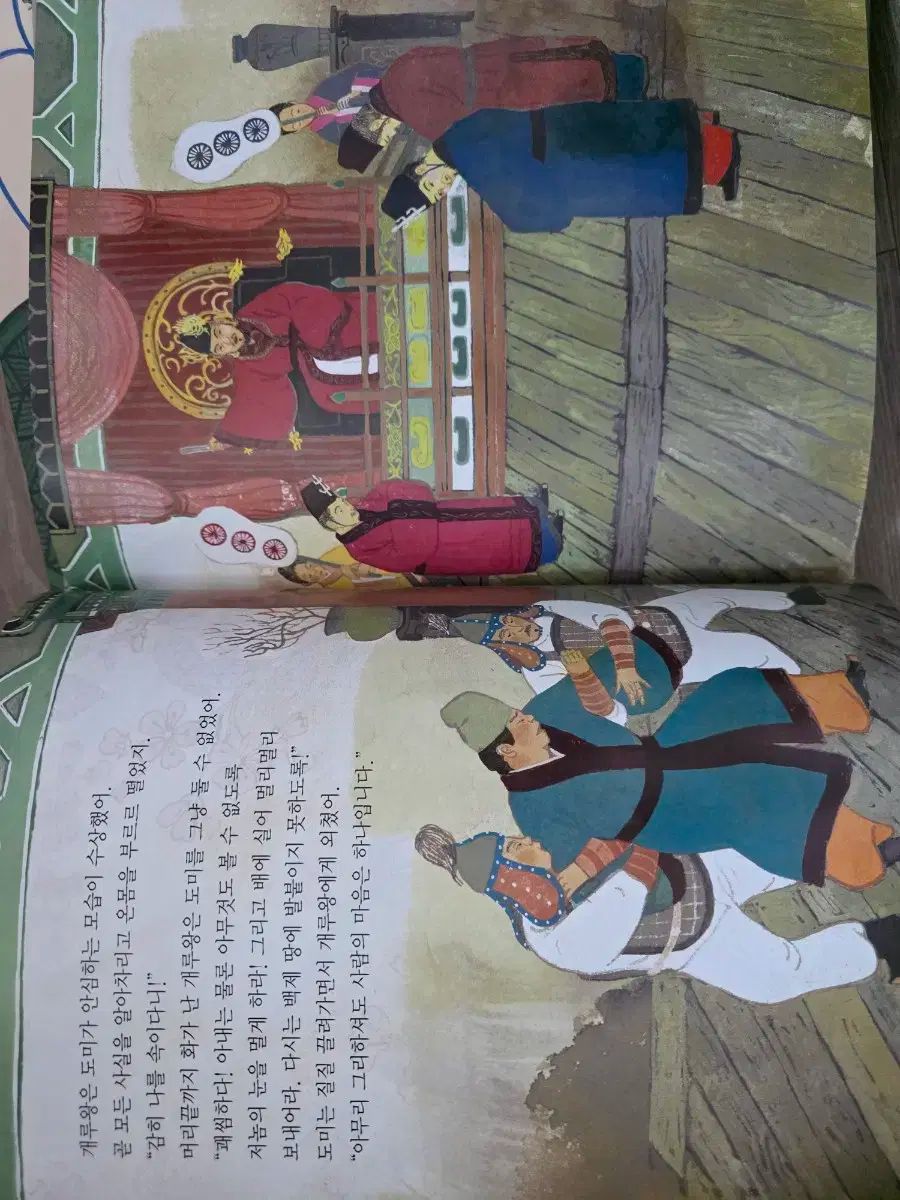 개루왕은 도미가 안심하는 모습이 수상했어.
곧 모든 사실을 알아차리고 온몸을 부르르 떨었지.
“감히 나를 속이다니!”
머리끝까지 화가 난 개루왕은 도미를 그냥 둘 수 없었어.
“괘씸하다! 아내는 물론 아무것도 볼 수 없도록
저놈의 눈을 멀게 하라! 그리고 배에 실어 멀리멀리
보내어라. 다시는 백제 땅에 발붙이지 못하도록!”
도미는 질질 끌려가면서 개루왕에게 외쳤어.
“아무리 그리하셔도 사람의 마음은 하나입니다.”